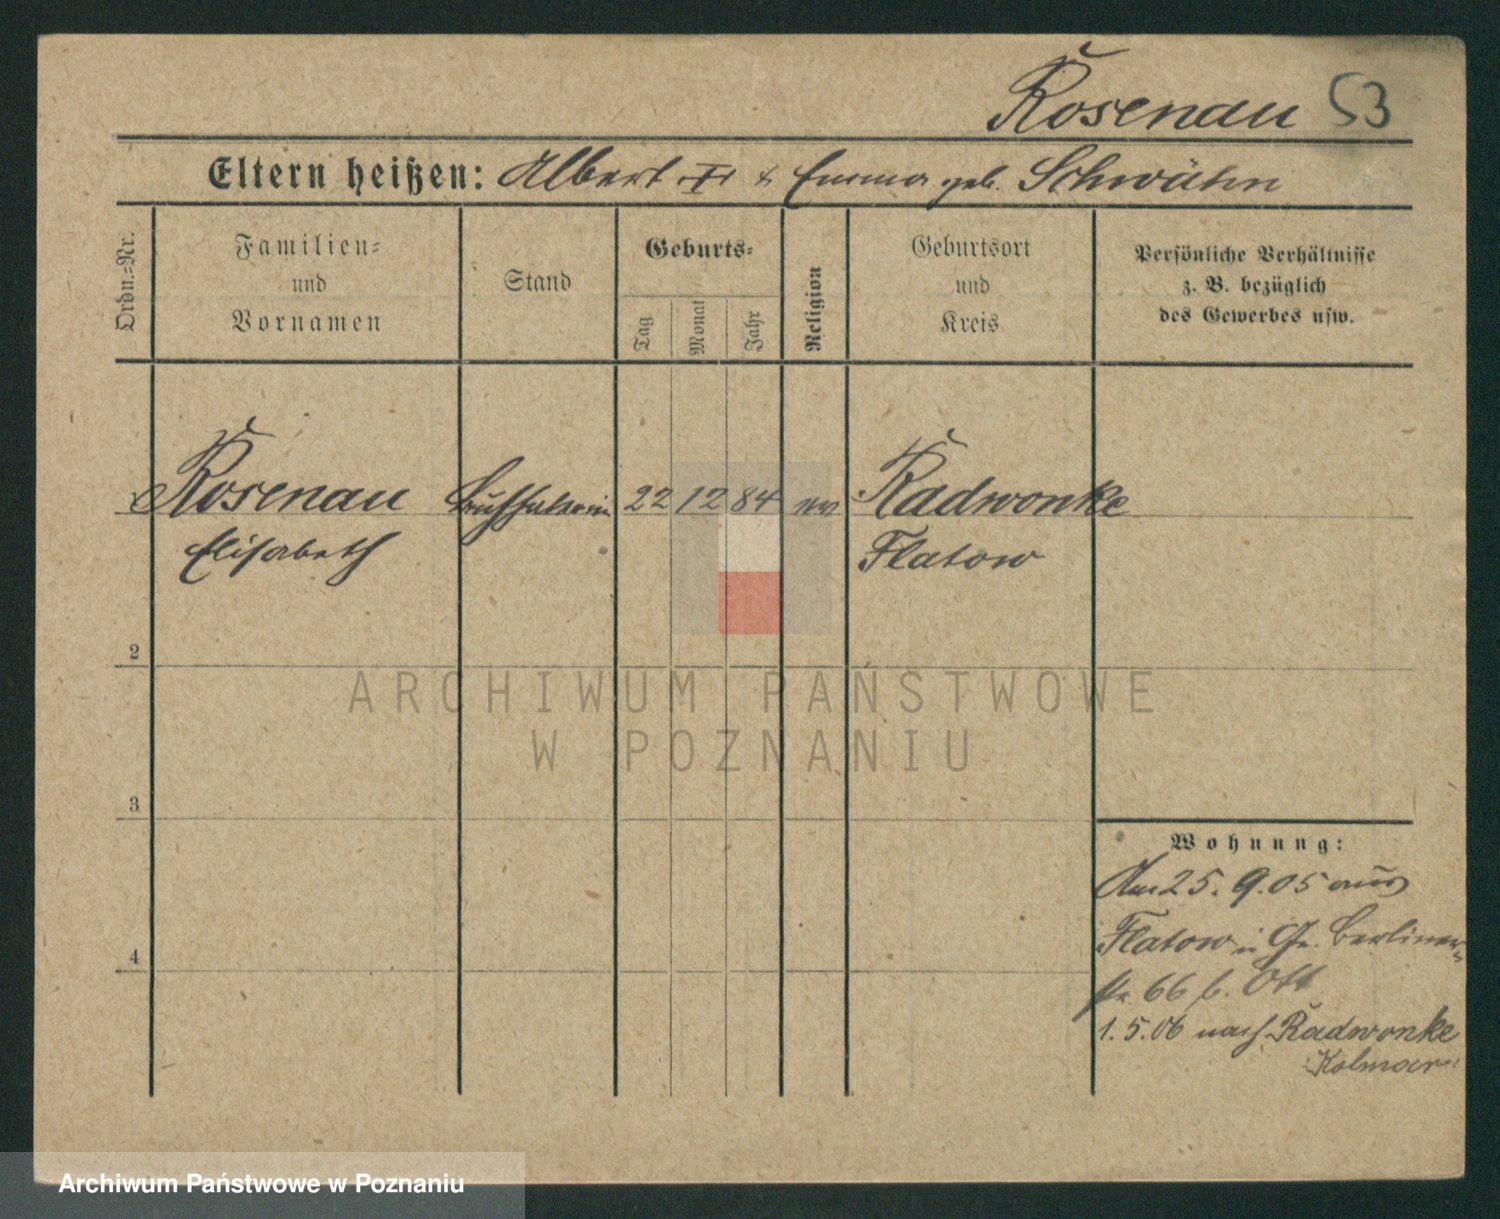 Rosenau 53
Eltern heißen: Albert & Emma geb. Schwähn
Ordn.=Nr.
Familien=
und
Vornamen
Stand
Geburts=
Tag
Monat
Jahr
Religion
Geburtsort
und
Kreis
Persönliche Verhältnisse
z. B. bezüglich
des Gewerbes usw.
Rosenau 22 12 84 ev Radwonke
Elisabeth Flatow
2
3
4
ARCHIWUM PAŃSTWOWE
W POZNANIU
Wohnung:
Am 25. 9. 05 aus
Flatow Berliner-
str 66 b. Ott
1. 5. 06 nach Radwonke
Kolmar
Archiwum Państwowe w Poznaniu